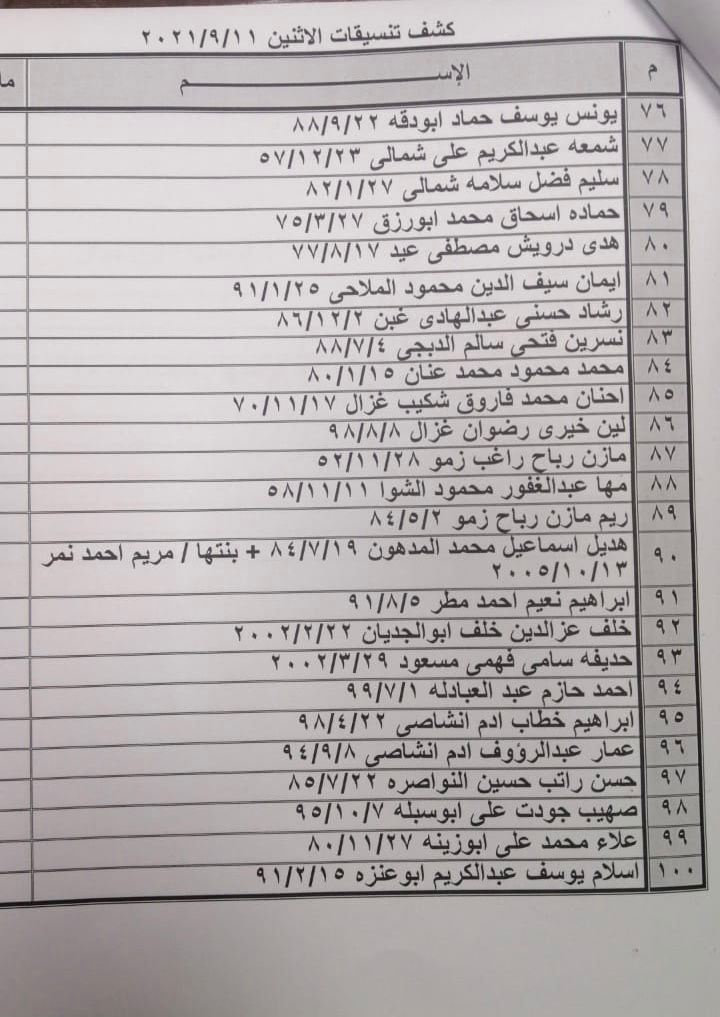 كشف تنسيقات الاثنين ٢٠٢١/٩/١١
م الإســـــــــم
٧٦ يونس يوسف حماد ابودقه ٨٨/٩/٢٢
٧٧ شمعه عبدالكريم على شمالى ٥٧/١٢/٢٣
٧٨ سليم فضل سلامه شمالى ٨٢/١/٢٧
٧٩ حماده اسحاق محمد ابورزق ٧٥/٣/٢٧
٨٠ هدى درويش مصطفى عيد ٧٧/٨/١٧
٨١ ايمان سيف الدين محمود الملاحى ٩١/١/٢٥
٨٢ رشاد حسنى عبدالهادى غبن ٨٦/١٢/٢
٨٣ نسرين فتحى سالم الدبجى ٨٨/٧/٤
٨٤ محمد محمود محمد عنان ٨٠/١/١٥
٨٥ احنان محمد فاروق شكيب غزال ٧٠/١١/١٧
٨٦ لين خيرى رضوان غزال ٩٨/٨/٨
٨٧ مازن رباح راغب زمو ٥٢/١١/٢٨
٨٨ مها عبدالغفور محمود الشوا ٥٨/١١/١١
٨٩ ريم مازن رباح زمو ٨٤/٥/٢
٩٠ هديل اسماعيل محمد المدهون ٨٤/٧/١٩ + بنتها / مريم احمد نمر
٢٠٠٥/١٠/١٣
٩١ ابراهيم نعيم احمد مطر ٩١/٨/٥
٩٢ خلف عزالدين خلف ابوالجديان ٢٠٠٢/٢/٢٢
٩٣ حديفه سامى فهمى مسعود ٢٠٠٢/٣/٢٩
٩٤ احمد حازم عبد العبادله ٩٩/٧/١
٩٥ ابراهيم خطاب ادم انشاصى ٩٨/٤/٢٢
٩٦ عمار عبدالرؤوف ادم انشاصى ٩٤/٩/٨
٩٧ حسن راتب حسين النواصره ٨٥/٧/٢٢
٩٨ صهيب جودت على ابوسبله ٩٥/١٠/٧
٩٩ علاء محمد على ابوزينه ٨٠/١١/٢٧
١٠٠ اسلام يوسف عبدالكريم ابوعنزه ٩١/٢/١٥